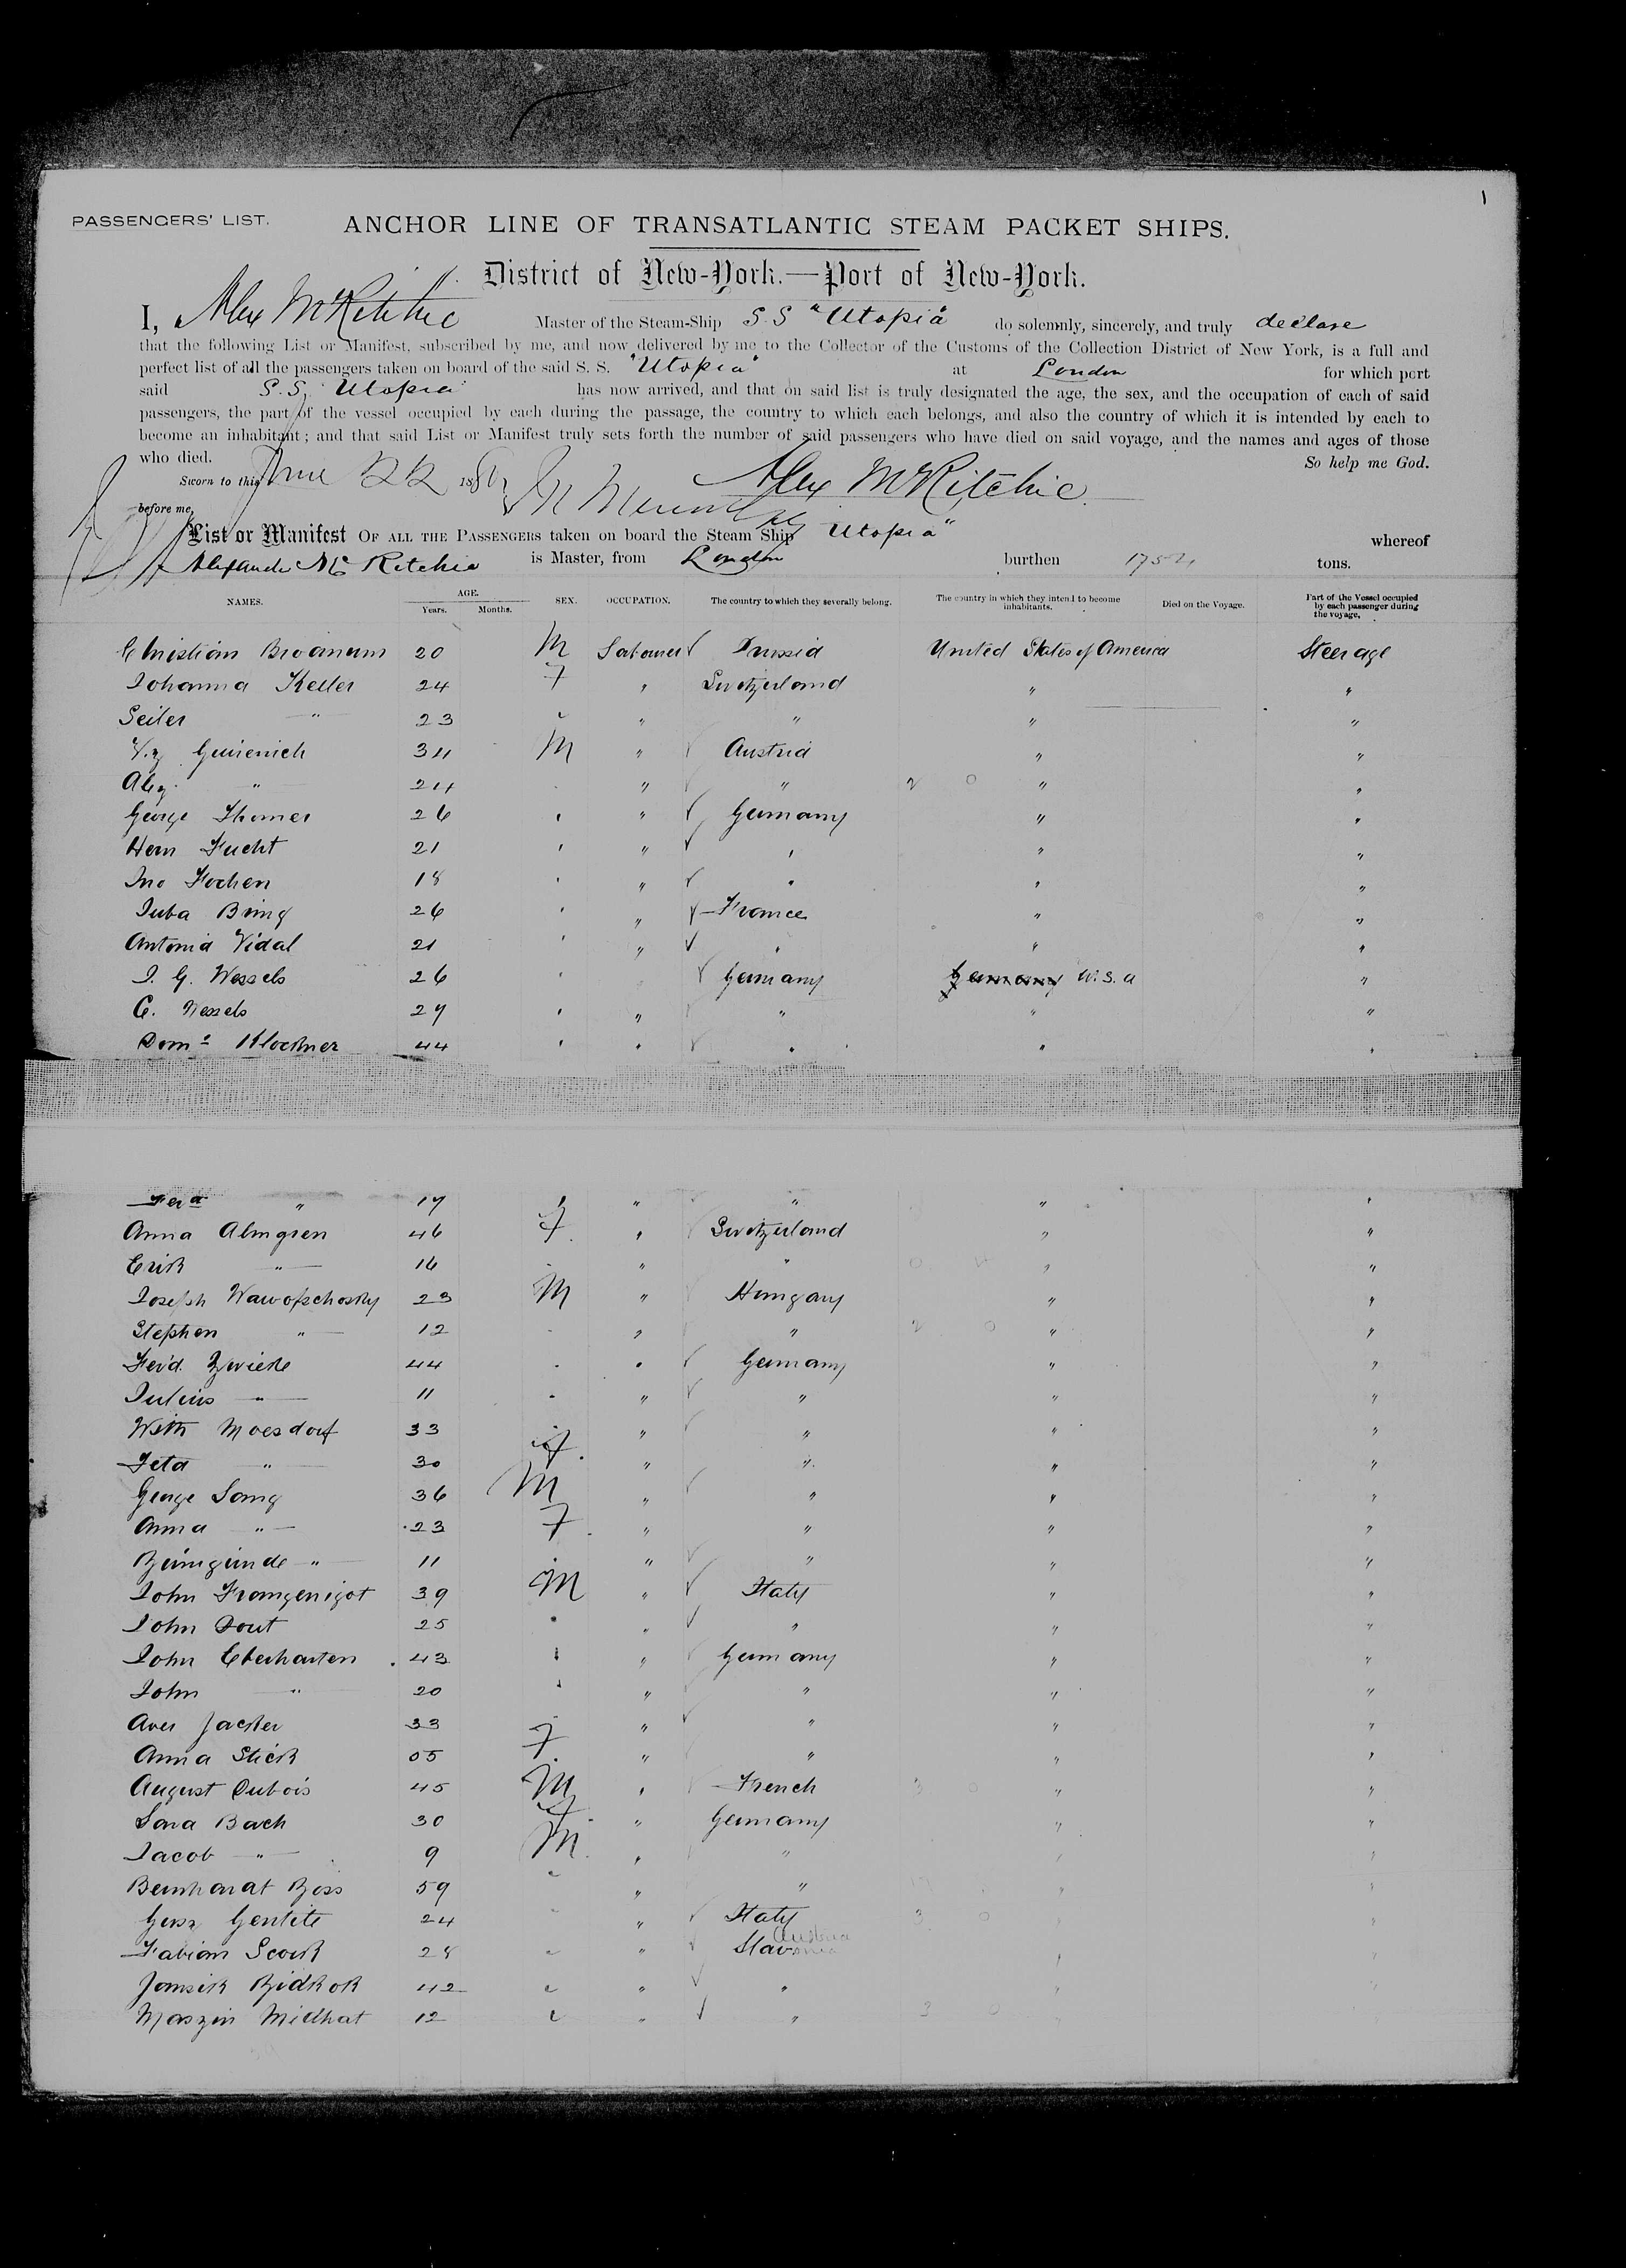 1
PASSENGERS' LIST.
ANCHOR LINE OF TRANSATLANTIC STEAM PACKET SHIPS.
District of New-York.—Port of New-York.
I, Alex McRitchie Master of the Steam-Ship S.S "Utopia" do solemnly, sincerely, and truly declare
that the following List or Manifest, subscribed by me, and now delivered by me to the Collector of the Customs of the Collection District of New York, is a full and
perfect list of all the passengers taken on board of the said S. S. "Utopia" at London for which port
said S.S. Utopia has now arrived, and that on said list is truly designated the age, the sex, and the occupation of each of said
passengers, the part of the vessel occupied by each during the passage, the country to which each belongs, and also the country of which it is intended by each to
become an inhabitant; and that said List or Manifest truly sets forth the number of said passengers who have died on said voyage, and the names and ages of those
who died. So help me God.
Sworn to this June 22 188 Alex McRitchie
before me,
List or Manifest OF ALL THE PASSENGERS taken on board the Steam Ship Utopia" whereof
Alexander Mc Ritchie is Master, from London burthen tons.
NAMES. AGE. Years. Months. SEX. OCCUPATION. The country to which they severally belong. The country in which they intend to become inhabitants. Died on the Voyage. Part of the Vessel occupied by each passenger during the voyage.
Christian 20 M Labourer United States of America Steerage
Johanna Keller 24 F " Switzerland " "
Seiler " 23 " " " " "
34 M " Austria " "
" 24 " " " "
George Thomer 26 " " Germany " "
Herm Fucht 21 " " " " "
Jno Fochen 18 " " " " "
Juba 26 " " France " "
Antonia Vidal 21 " " " " "
J. G. Wessels 26 " Germany Germany U.S.a "
C. Wessels 27 " " " " "
44 " " " " "
" 17 " " " " "
Anna Almgren 46 F. " Switzerland " "
Erik " 16 " " " "
Joseph 23 M " Hungary " "
Stephen " 12 " " " "
Ferd. 44 " Germany " "
Julius " 11 " " " " "
Moesdorf 33 " " " "
" 30 F. " " " "
George Lang 36 M " " " "
Anna " 23 F. " " " "
" 11 " " " "
John 39 M " Italy " "
John 25 " " " " "
John Eberharten 43 " " Germany " "
John " 20 " " " " "
33 " " " "
Anna 05 F. " " " "
August Dubois 45 M " French " "
Sara Bach 30 F. " Germany " "
Jacob " 9 M. " " " "
Bernhardt 59 " " " " "
Gentile 24 " " Italy " "
Fabian 28 " " Slavonia Austria " "
42 " " " "
Midhat 12 " " " "